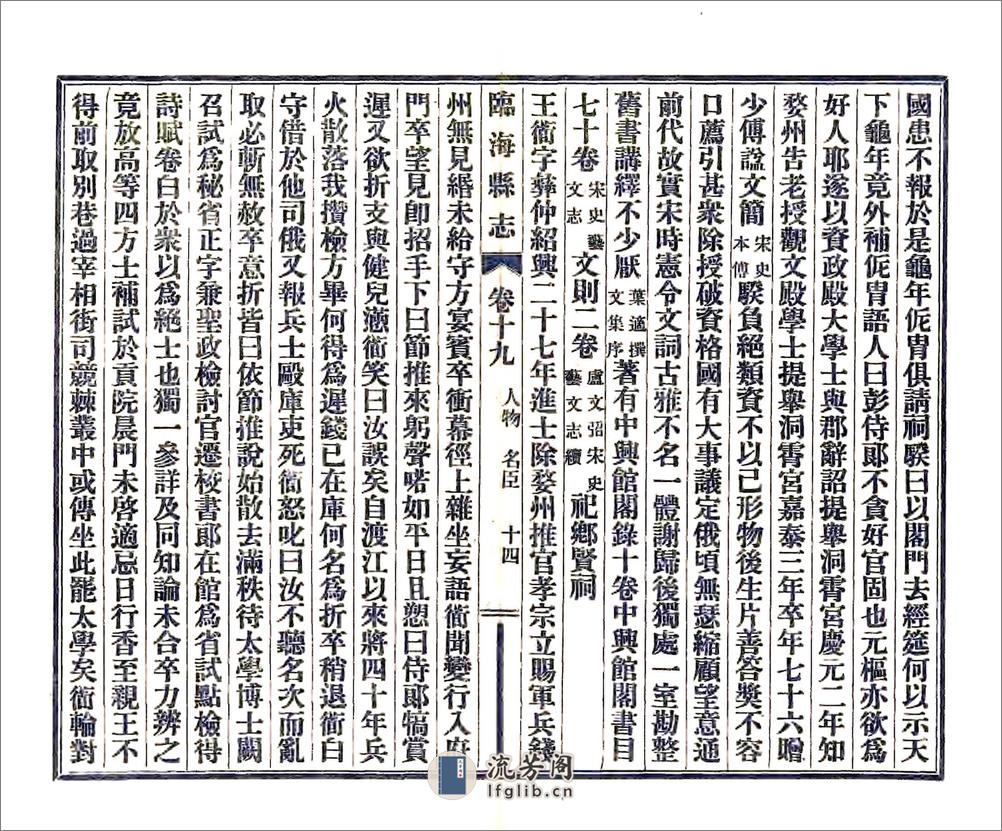 國患不報於是龜年侂冑俱請祠騤曰以閣門去經筵何以示天
下龜年竟外補侂冑語人曰彭侍郎不貪好官固也元樞亦欲爲
好人耶遂以資政殿大學士與郡辭詔提舉洞霄宮慶元二年知
婺州告老授觀文殿學士提舉洞霄宮嘉泰三年卒年七十六贈
少傅諡文簡宋史本傳騤負絕類資不以己形物後生片善答獎不容
口薦引甚衆除授破資格國有大事議定俄頃無瑟縮顧望意通
前代故實宋時憲令文詞古雅不名一體謝歸後獨處一室勘整
舊書講繹不少厭葉適撰文集序著有中興館閣錄十卷中興館閣書目
七十卷宋史藝文志文則二卷盧文弨宋史藝文志續祀鄉賢祠
王衟字彝仲紹興二十七年進士除婺州推官孝宗立賜軍兵錢
臨海縣志 卷十九 人物 名臣 十四
州無見緡未給守方宴賓卒衝幕徑上雜坐妄語衟聞變行入府
門卒望見卽招手下曰節推來躬聲喏如平日且愬曰侍郎犒賞
遲又欲折支與健兒懣衟笑曰汝誤矣自渡江以來將四十年兵
火散落我攢檢方畢何得爲遲錢已在庫何名爲折卒稍退衟白
守借於他司俄又報兵士毆庫吏死衟怒叱曰汝不聽名次而亂
取必斬無赦卒意折皆曰依節推說始散去滿秩待太學博士闕
召試爲秘省正字兼聖政檢討官遷校書郎在館爲省試點檢得
詩賦卷白於衆以爲絕士也獨一參詳及同知論未合卒力辨之
竟放高等四方士補試於貢院晨門未啓適忌日行香至親王不
得前取別巷過宰相街司競棘叢中或傳坐此罷太學矣衟輪對
流芳阁
lfglib.cn